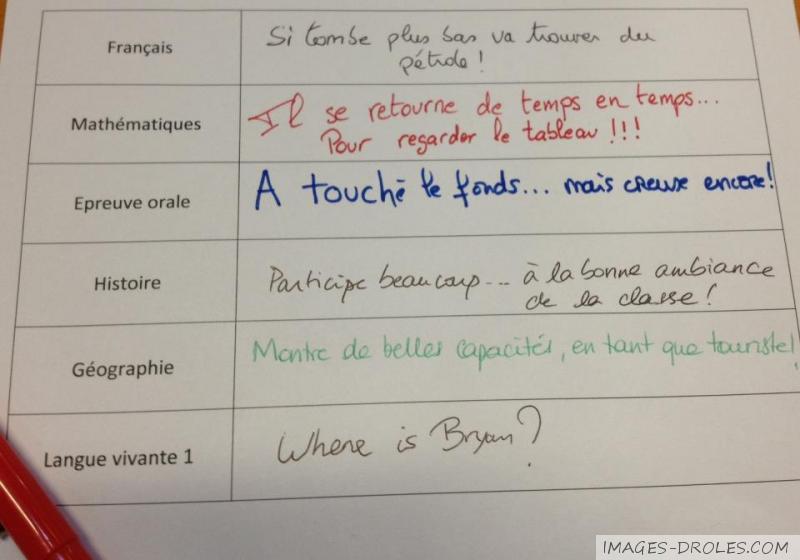 Français
Si tombe plus bas va trouver du
pétrole !
Mathématiques
Il se retourne de temps en temps...
Pour regarder le tableau !!!
Epreuve orale
A touché le fonds... mais creuse encore!
Histoire
Participe beaucoup... à la bonne ambiance
de la classe !
Géographie
Montre de belles capacités, en tant que touriste!
Langue vivante 1
Where is Bryan ?
IMAGES-DROLES.COM